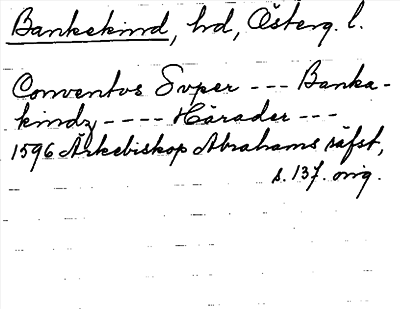 Bankekind, hd, Österg. l.
Conventus Super --- Banka-
kindz ---- Härader ---
1596 Ärkebiskop Abrahams räfst,
s. 137. orig.